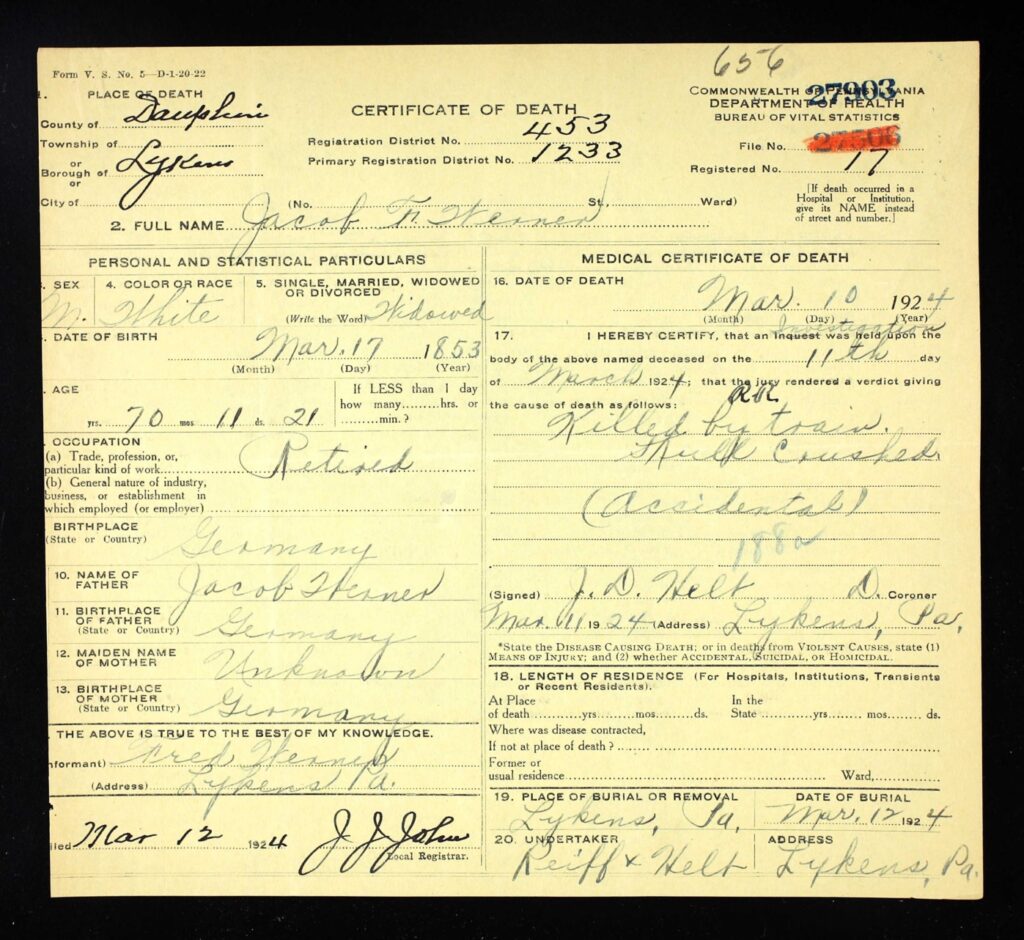 656
Form V. S. No. 5—D-1-20-22
1. PLACE OF DEATH
County of Dauphin
Township of
or
Borough of Lykens
or
City of
CERTIFICATE OF DEATH
Registration District No. 453
Primary Registration District No. 1233
(No. St. Ward)
COMMONWEALTH OF PENNSYLVANIA
27903
DEPARTMENT OF HEALTH
BUREAU OF VITAL STATISTICS
File No.
Registered No. 17
[If death occurred in a
Hospital or Institution,
give its NAME instead
of street and number.]
2. FULL NAME Jacob F. Werner
PERSONAL AND STATISTICAL PARTICULARS
SEX
M.
4. COLOR OR RACE
White
5. SINGLE, MARRIED, WIDOWED
OR DIVORCED
(Write the Word) Widowed
DATE OF BIRTH
Mar. 17 1853
(Month) (Day) (Year)
AGE
yrs. 70 mos. 11 ds. 21
If LESS than 1 day
how many........hrs. or
........min.?
OCCUPATION
(a) Trade, profession, or,
particular kind of work Retired
(b) General nature of industry,
business, or establishment in
which employed (or employer)
BIRTHPLACE
(State or Country) Germany
10. NAME OF
FATHER Jacob Werner
11. BIRTHPLACE
OF FATHER
(State or Country) Germany
12. MAIDEN NAME
OF MOTHER Unknown
13. BIRTHPLACE
OF MOTHER
(State or Country) Germany
THE ABOVE IS TRUE TO THE BEST OF MY KNOWLEDGE.
nformant) Fred Werner
(Address) Lykens Pa.
iled Mar 12 1924 J J John
Local Registrar.
MEDICAL CERTIFICATE OF DEATH
16. DATE OF DEATH
Mar. 10 1924
(Month) (Day) (Year)
Investigation
17. I HEREBY CERTIFY, that an Inquest was held upon the
body of the above named deceased on the 11th day
of March 1924; that the jury rendered a verdict giving
the cause of death as follows: RR
Killed by train.
Skull Crushed.
(Accidental)
188a
(Signed) J. D. Helt D. Coroner
Mar. 11 1924 (Address) Lykens, Pa.
*State the DISEASE CAUSING DEATH; or in deaths from VIOLENT CAUSES, state (1)
MEANS OF INJURY; and (2) whether ACCIDENTAL, SUICIDAL, or HOMICIDAL.
18. LENGTH OF RESIDENCE (For Hospitals, Institutions, Transients
or Recent Residents).
At Place
of death........yrs........mos........ds.
In the
State........yrs........mos........ds.
Where was disease contracted,
If not at place of death?
Former or
usual residence Ward,
19. PLACE OF BURIAL OR REMOVAL
Lykens, Pa.
DATE OF BURIAL
Mar. 12 1924
20. UNDERTAKER
Reiff & Helt
ADDRESS
Lykens, Pa.